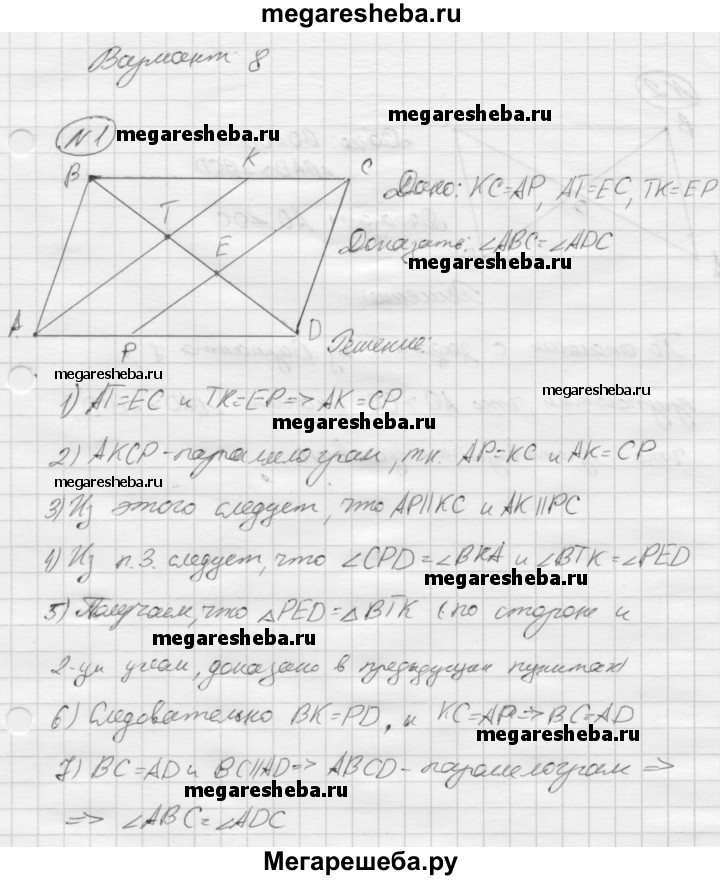 megaresheba.ru
Вариант 8
№1 megaresheba.ru
megaresheba.ru
B K C
Дано: KC=AP, AT=EC, TK=EP
T
Доказать: ∠ABC=∠ADC
megaresheba.ru
E
A P D
Решение:
megaresheba.ru
megaresheba.ru
1) AT=EC и TK=EP=> AK=CP
megaresheba.ru
2) AKCP-параллелограм, т.к. AP=KC и AK=CP
megaresheba.ru
3) Из этого следует, что AP||KC и AK||PC
4) Из п.3. следует, что ∠CPD=∠BKA и ∠BTK=∠PED
megaresheba.ru
5) Получаем, что △PED=△BTK (по стороне и
megaresheba.ru
2-ум углам, доказано в предыдущих пунктах)
megaresheba.ru
6) Следовательно BK=PD, и KC=AP=>BC=AD
megaresheba.ru
7) BC=AD и BC||AD=> ABCD-параллелограм =>
megaresheba.ru
=> ∠ABC=∠ADC
Мегарешеба.ру